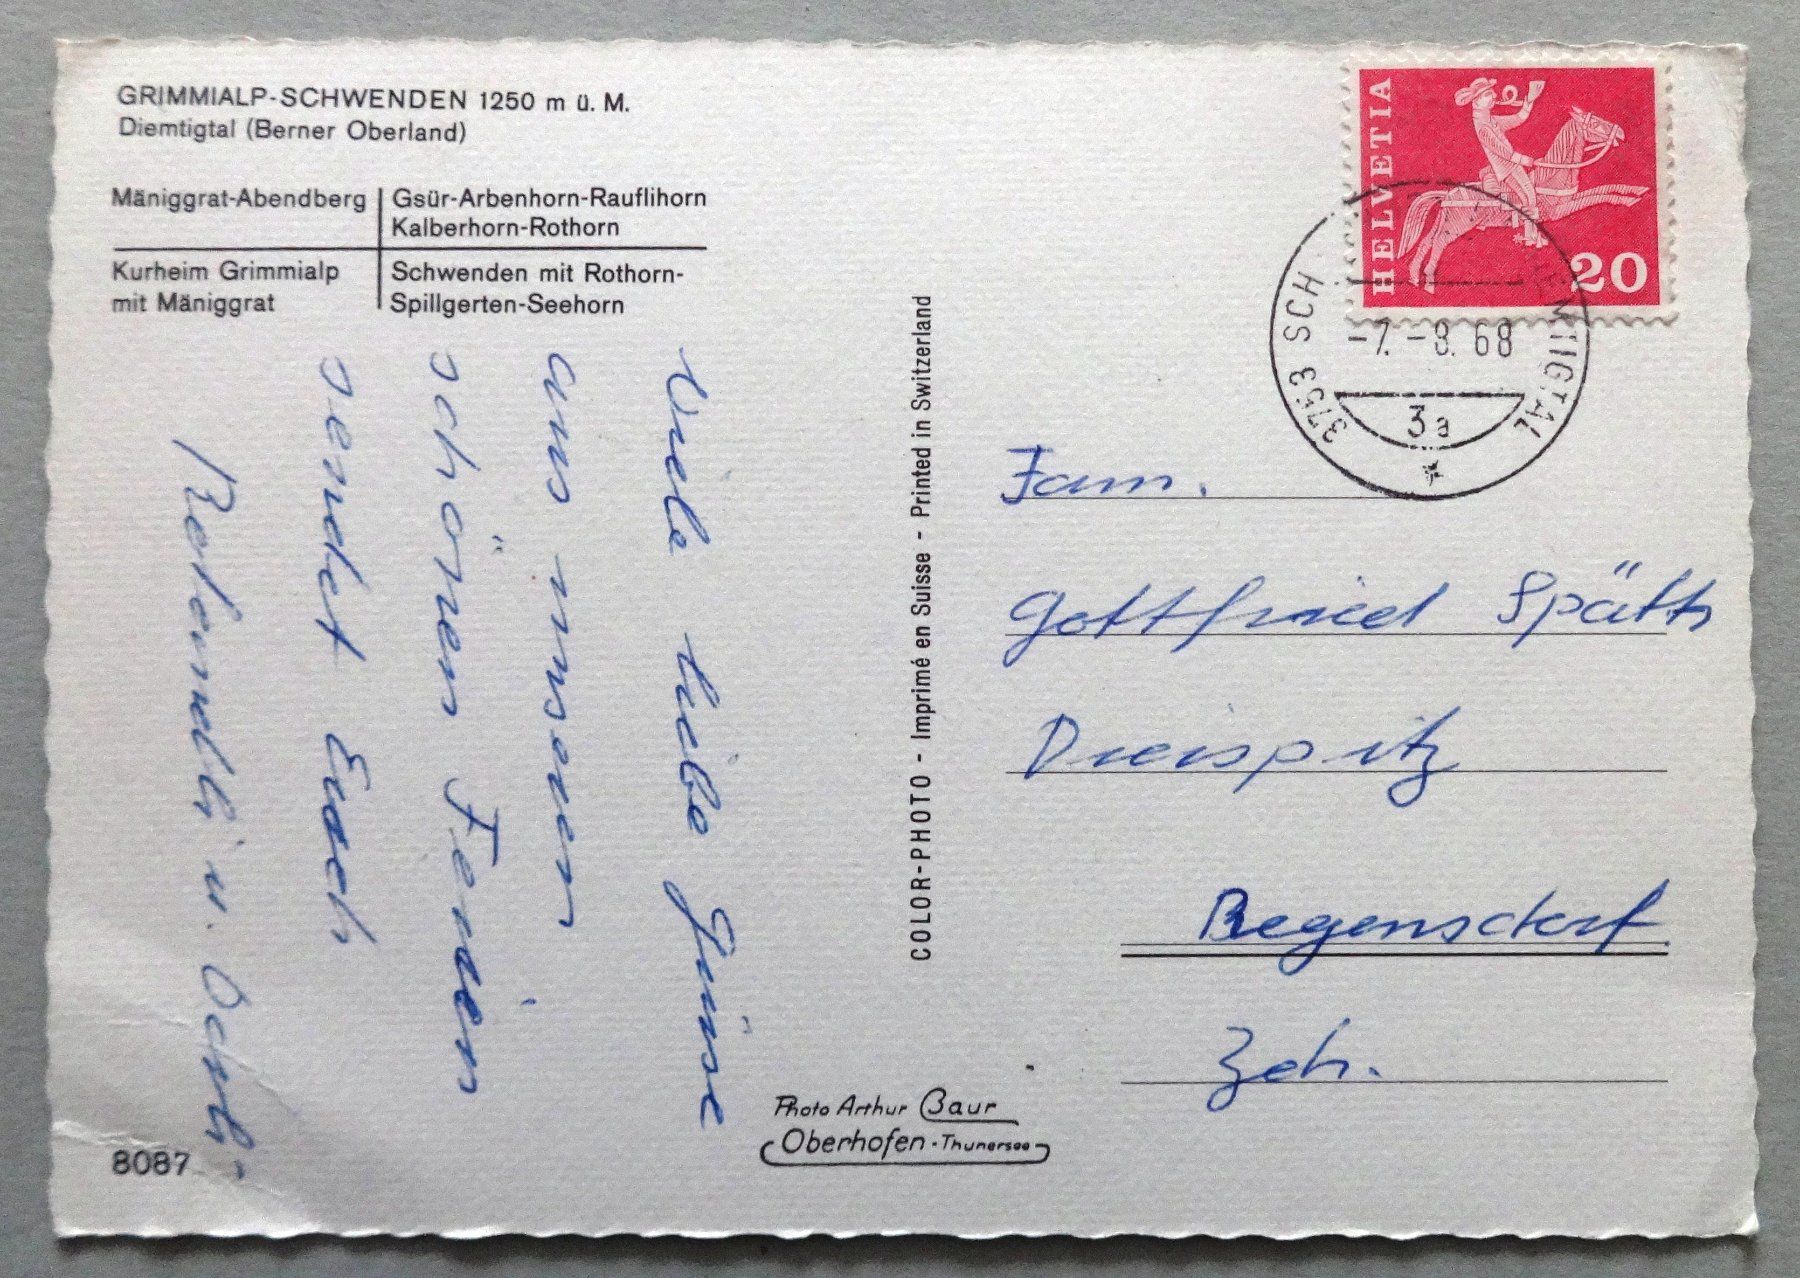 GRIMMIALP-SCHWENDEN 1250 m ü. M.
Diemtigtal (Berner Oberland)
Mäniggrat-Abendberg
Gsür-Arbenhorn-Rauflihorn
Kalberhorn-Rothorn
Kurheim Grimmialp
mit Mäniggrat
Schwenden mit Rothorn-
Spillgerten-Seehorn
Viele liebe Grüsse
aus unseren
schönen Ferien
sendet Euch
u.
8087
COLOR-PHOTO - Imprimé en Suisse - Printed in Switzerland
Photo Arthur Baur
Oberhofen-Thunersee
HELVETIA
20
3753 SCH
-7.-8.68
3a
Fam.
Gottfried Späth
Dreispitz
Regensdorf
Zch.